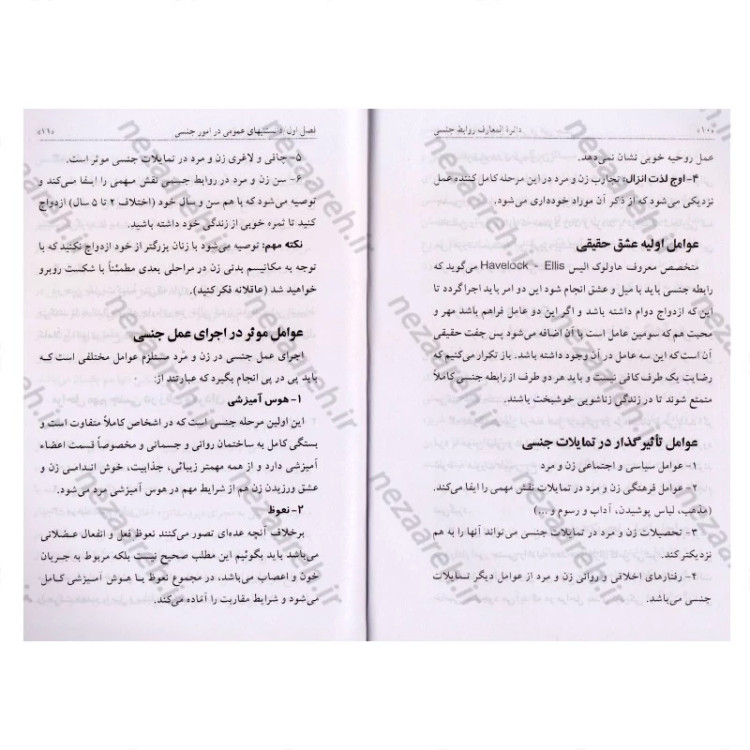 «۱۰» دائرة المعارف روابط جنسی
عمل روحیه خوبی نشان نمی‌دهد.
۴- اوج لذت انزال: تجارب زن و مرد در این مرحله کامل کننده عمل
نزدیکی می‌شود که از ذکر آن موراد خودداری می‌شود.
عوامل اولیه عشق حقیقی
متخصص معروف هاولوک الیس Havelock - Ellis می‌گوید که
رابطه جنسی باید با میل و عشق انجام شود این دو امر باید اجرا گردد تا
این که ازدواج دوام داشته باشد و اگر این دو عامل فراهم باشد مهر و
محبت هم که سومین عامل است با آن اضافه می‌شود پس جفت حقیقی
آن است که این سه عامل در آن وجود داشته باشد. باز تکرار می‌کنیم که
رضایت یک طرف کافی نیست و باید هر دو طرف از رابطه جنسی کاملاً
متمتع شوند تا در زندگی زناشویی خوشبخت باشند.
عوامل تأثیرگذار در تمایلات جنسی
۱- عوامل سیاسی و اجتماعی زن و مرد
۲- عوامل فرهنگی زن و مرد در تمایلات نقش مهمی را ایفا می‌کند.
(مذهب، لباس پوشیدن، آداب و رسوم و ...)
۳- تحصیلات زن و مرد در تمایلات جنسی می‌تواند آنها را به هم
نزدیکتر کند.
۴- رفتارهای اخلاقی و روانی زن و مرد از عوامل دیگر تمایلات
جنسی می‌باشد.
فصل اول / دانستنیهای عمومی در امور جنسی «۱۱»
۵- چاقی و لاغری زن و مرد در تمایلات جنسی موثر است.
۶- سن زن و مرد در روابط جنسی نقش مهمی را ایفا می‌کند و
توصیه می‌شود که با هم سن و سال خود (اختلاف ۲ تا ۵ سال) ازدواج
کنید تا ثمره خوبی از زندگی خود داشته باشید.
نکته مهم: توصیه می‌شود با زنان بزرگتر از خود ازدواج نکنید که با
توجه به مکانیسم بدنی زن در مراحلی بعدی مطمئناً با شکست روبرو
خواهید شد (عاقلانه فکر کنید).
عوامل موثر در اجرای عمل جنسی
اجرای عمل جنسی در زن و مرد مستلزم عوامل مختلفی است که
باید پی در پی انجام بگیرد که عبارتند از:
۱- هوس آمیزشی
این اولین مرحله جنسی است که در اشخاص کاملاً متفاوت است و
بستگی کامل به ساختمان روانی و جسمانی و مخصوصاً قسمت اعضاء
آمیزشی دارد و از همه مهمتر زیبائی، جذابیت، خوش اندامسی زن و
عشق ورزیدن زن هم از شرایط مهم در هوس آمیزشی مرد می‌شود.
۲- نعوظ
برخلاف آنچه عده‌ای تصور می‌کنند نعوظ فعل و انفعال عضلانی
می‌باشد باید بگوئیم این مطلب صحیح نیست بلکه مربوط به جریان
خون و اعصاب می‌باشد، در مجموع نعوظ با هوش آمیزشی کامل
می‌شود و شرایط مقاربت را آماده می‌کند.
nezaareh.ir